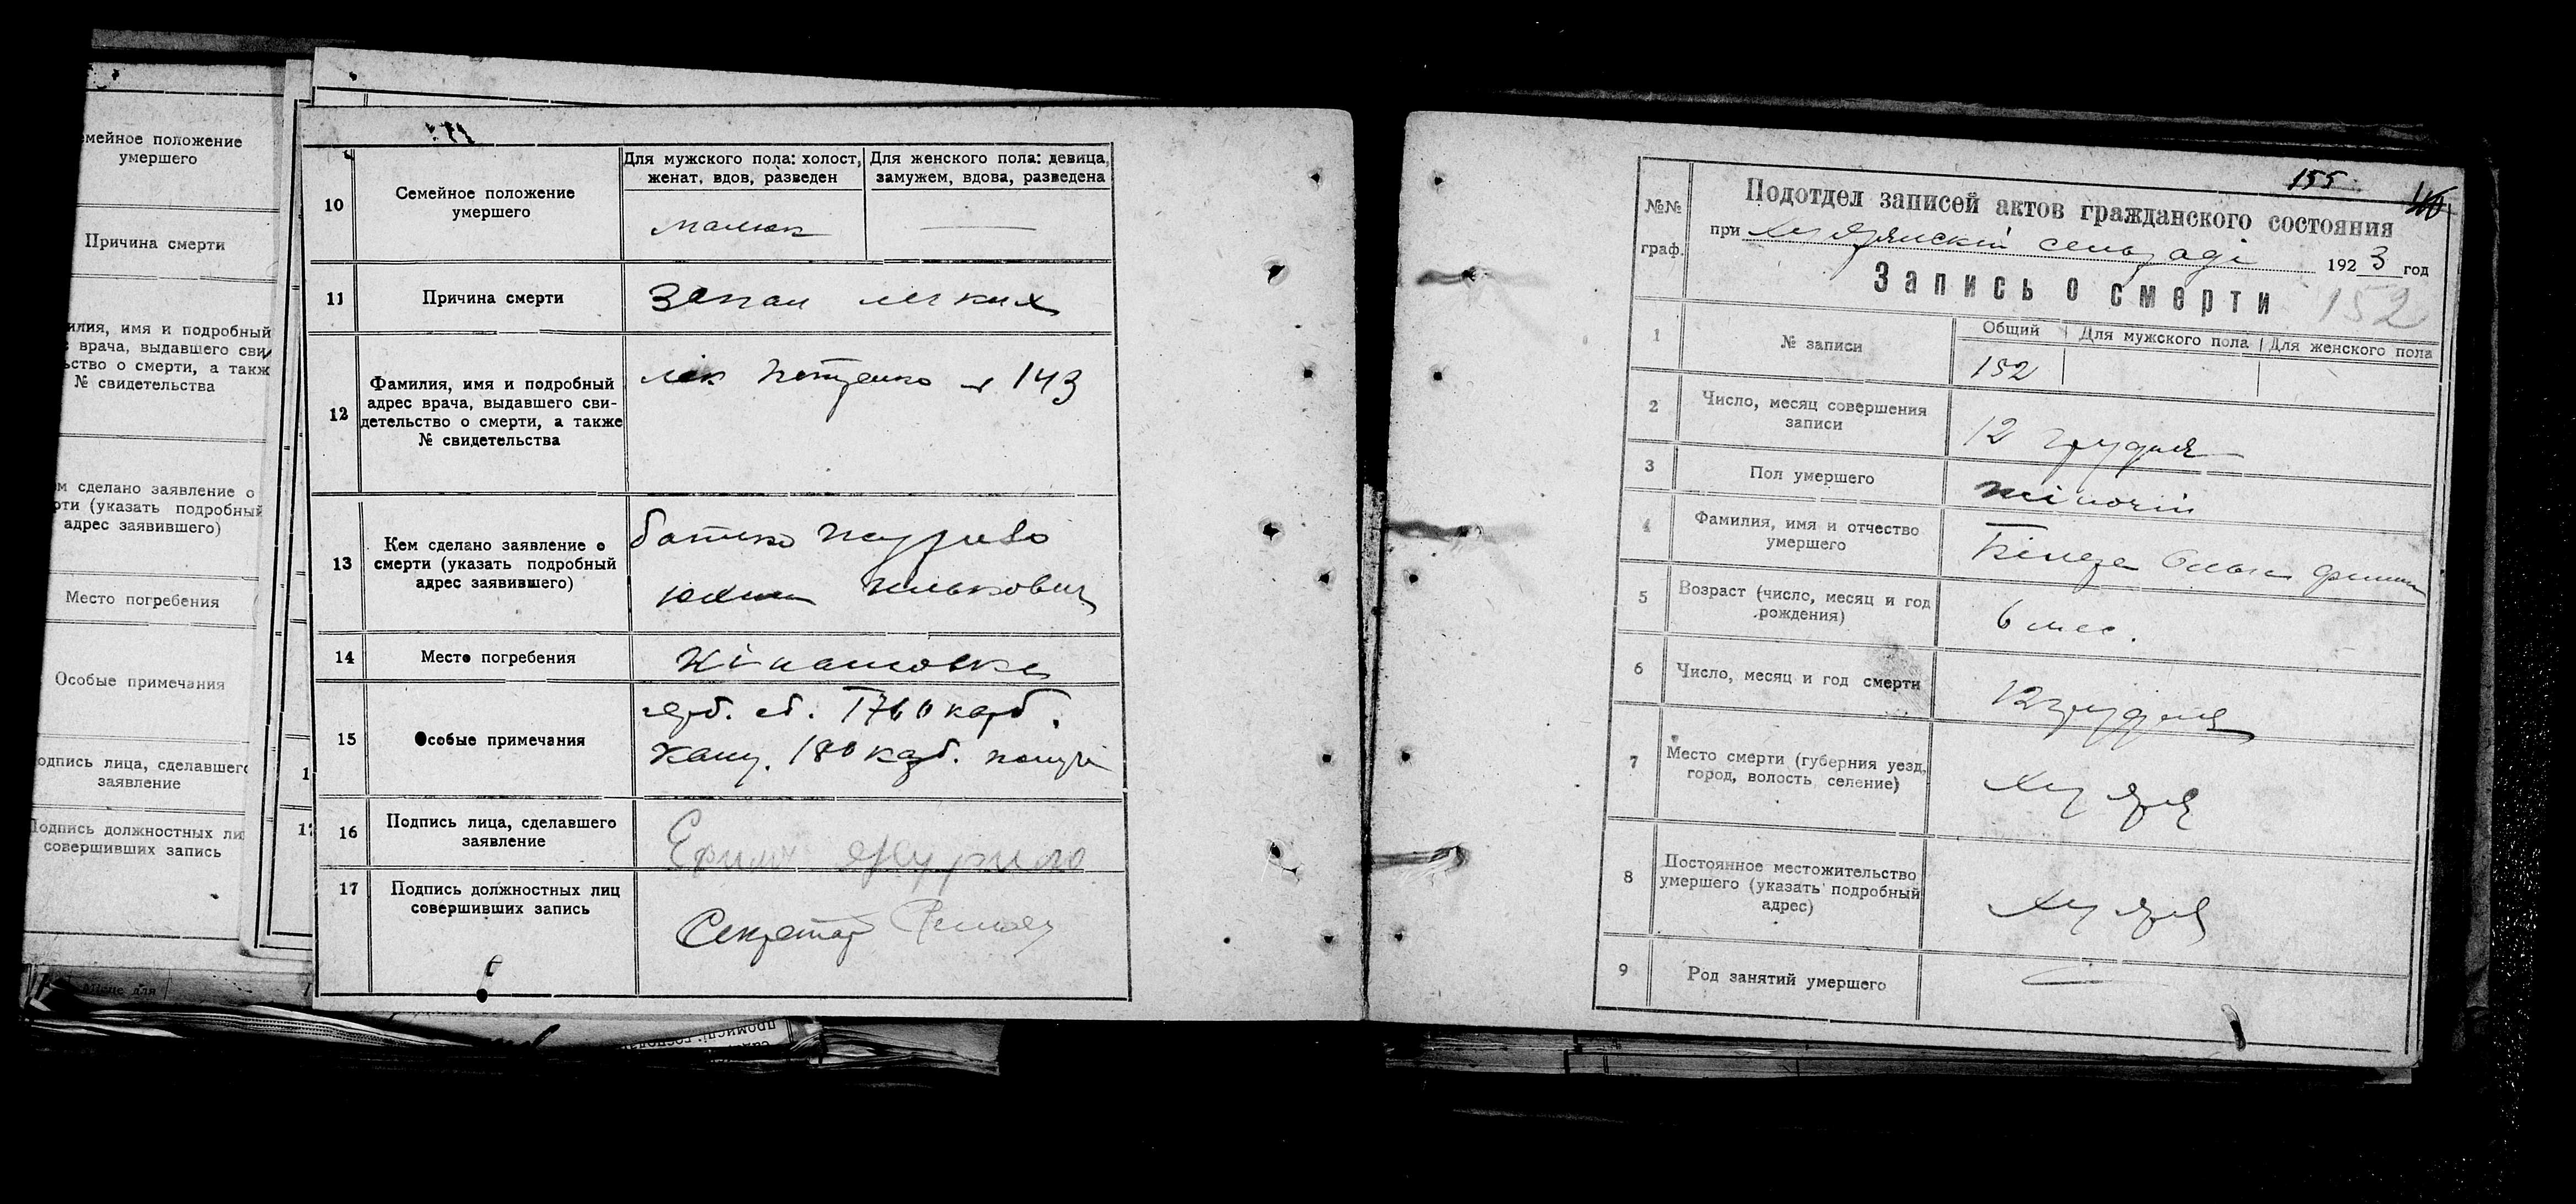 мейное положение
умершего
Причина смерти
илия, имя и подробный
врача, выдавшего сви
ьство о смерти, а такж
№ свидетельства
м сделано заявление о
рти (указать подробный
адрес заявившего)
Место погребения
Особые примечания
одпись лица, сделавшего
заявление
Подпись должностных ли
совершивших запись
10
Семейное положение
умершего
Для мужского пола: холост,
женат, вдов, разведен
Для женского пола: девица,
замужем, вдова, разведена
малюк
11
Причина смерти
Запал легких
12
Фамилия, имя и подробный
адрес врача, выдавшего сви-
детельство о смерти, а также
№ свидетельства
лік 143
13
Кем сделано заявление о
смерти (указать подробный
адрес заявившего)
батько Журило
Юхим
14
Место погребения
15
Особые примечания
герб. сб. 1760 карб.
канц. 180 карб.
16
Подпись лица, сделавшего
заявление
Ефим Журило
17
Подпись должностных лиц
совершивших запись
Секретар
155
№№
граф.
Подотдел записей актов гражданского состояния
при Худяжскій сельраді 1923 год
Запись о смерти
152
1
№ записи
Общий
Для мужского пола
Для женского пола
152
2
Число, месяц совершения
записи
12 грудня
3
Пол умершего
жіночій
4
Фамилия, имя и отчество
умершего
5
Возраст (число, месяц и год
рождения)
6 мес.
6
Число, месяц и год смерти
12 грудня
7
Место смерти (губерния уезд,
город, волость селение)
8
Постоянное местожительство
умершего (указать подробный
адрес)
9
Род занятий умершего